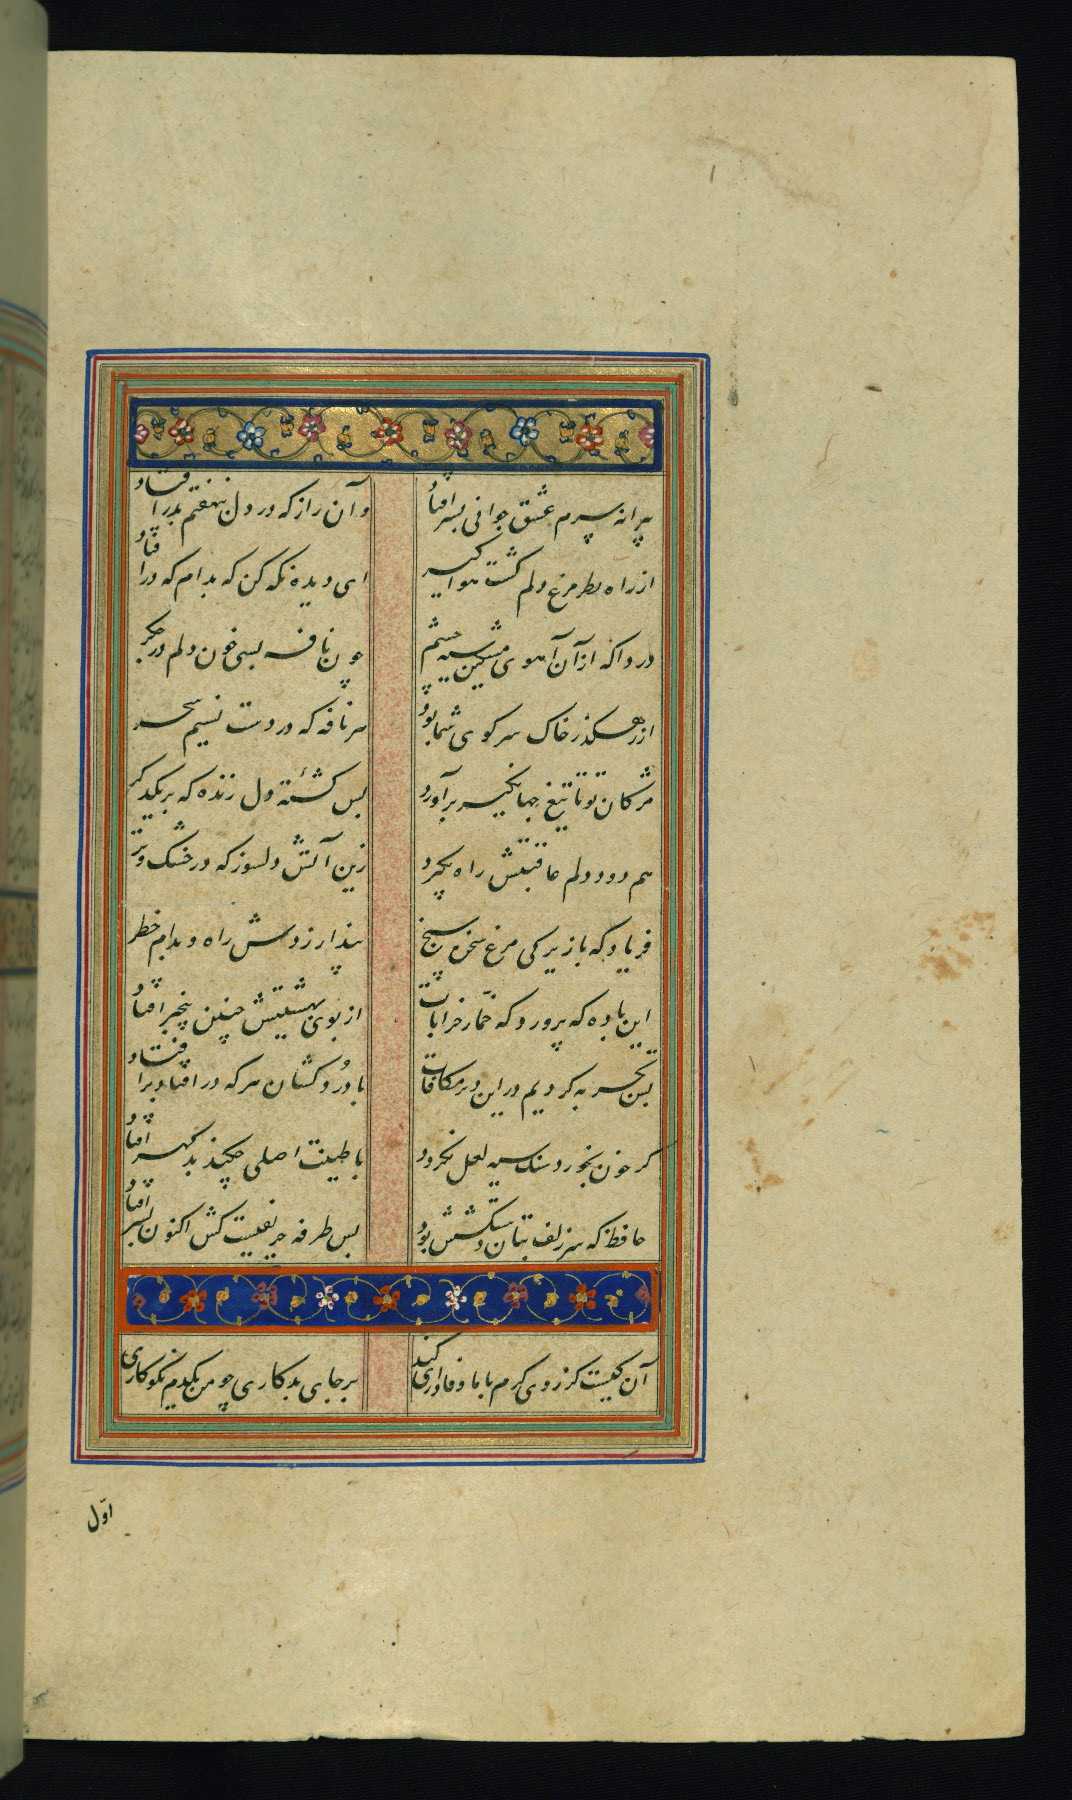 پیرانه سرم عشق جوانی بسر افتاد
وآن راز که در دل بنهفتم بدر افتاد
از راه نظر مرغ دلم گشت هوا گیر
ای دیده نگه کن که بدام که در افتاد
دردا که از آن آهوی مشکین سیه چشم
چون نافه بسی خون دلم در جگر
از رهگذر خاک سر کوی شما بود
هر نافه که در دست نسیم سحر
مژگان تو تا تیغ جهانگیر برآورد
بس کشتهٔ دل زنده که بر یکدگر
هم دود دلم عاقبتش راه بگیرد
زین آتش دلسوز که در خشک و تر
فریاد که با زیرکی مرغ سخن سنج
پندار زدش راه و بدام خطر
این باده که پرورد که خمّار خرابات
از بوی بهشتیش چنین بیخبر افتاد
بس تجربه کردیم در این دیر مکافات
با دُرد کشان هر که در افتاد بر افتاد
گر خون بخورد سنگ سیه لعل نگردد
با طینت اصلی چکند بد گهر افتاد
حافظ که سر زلف بتان دستکشش بود
بس طرفه حریفیست کش اکنون بسر افتاد
آن کیست کز روی کرم با ما وفاداری کند
بر جای بدکاری چو من یکدم نکوکاری
اوّل